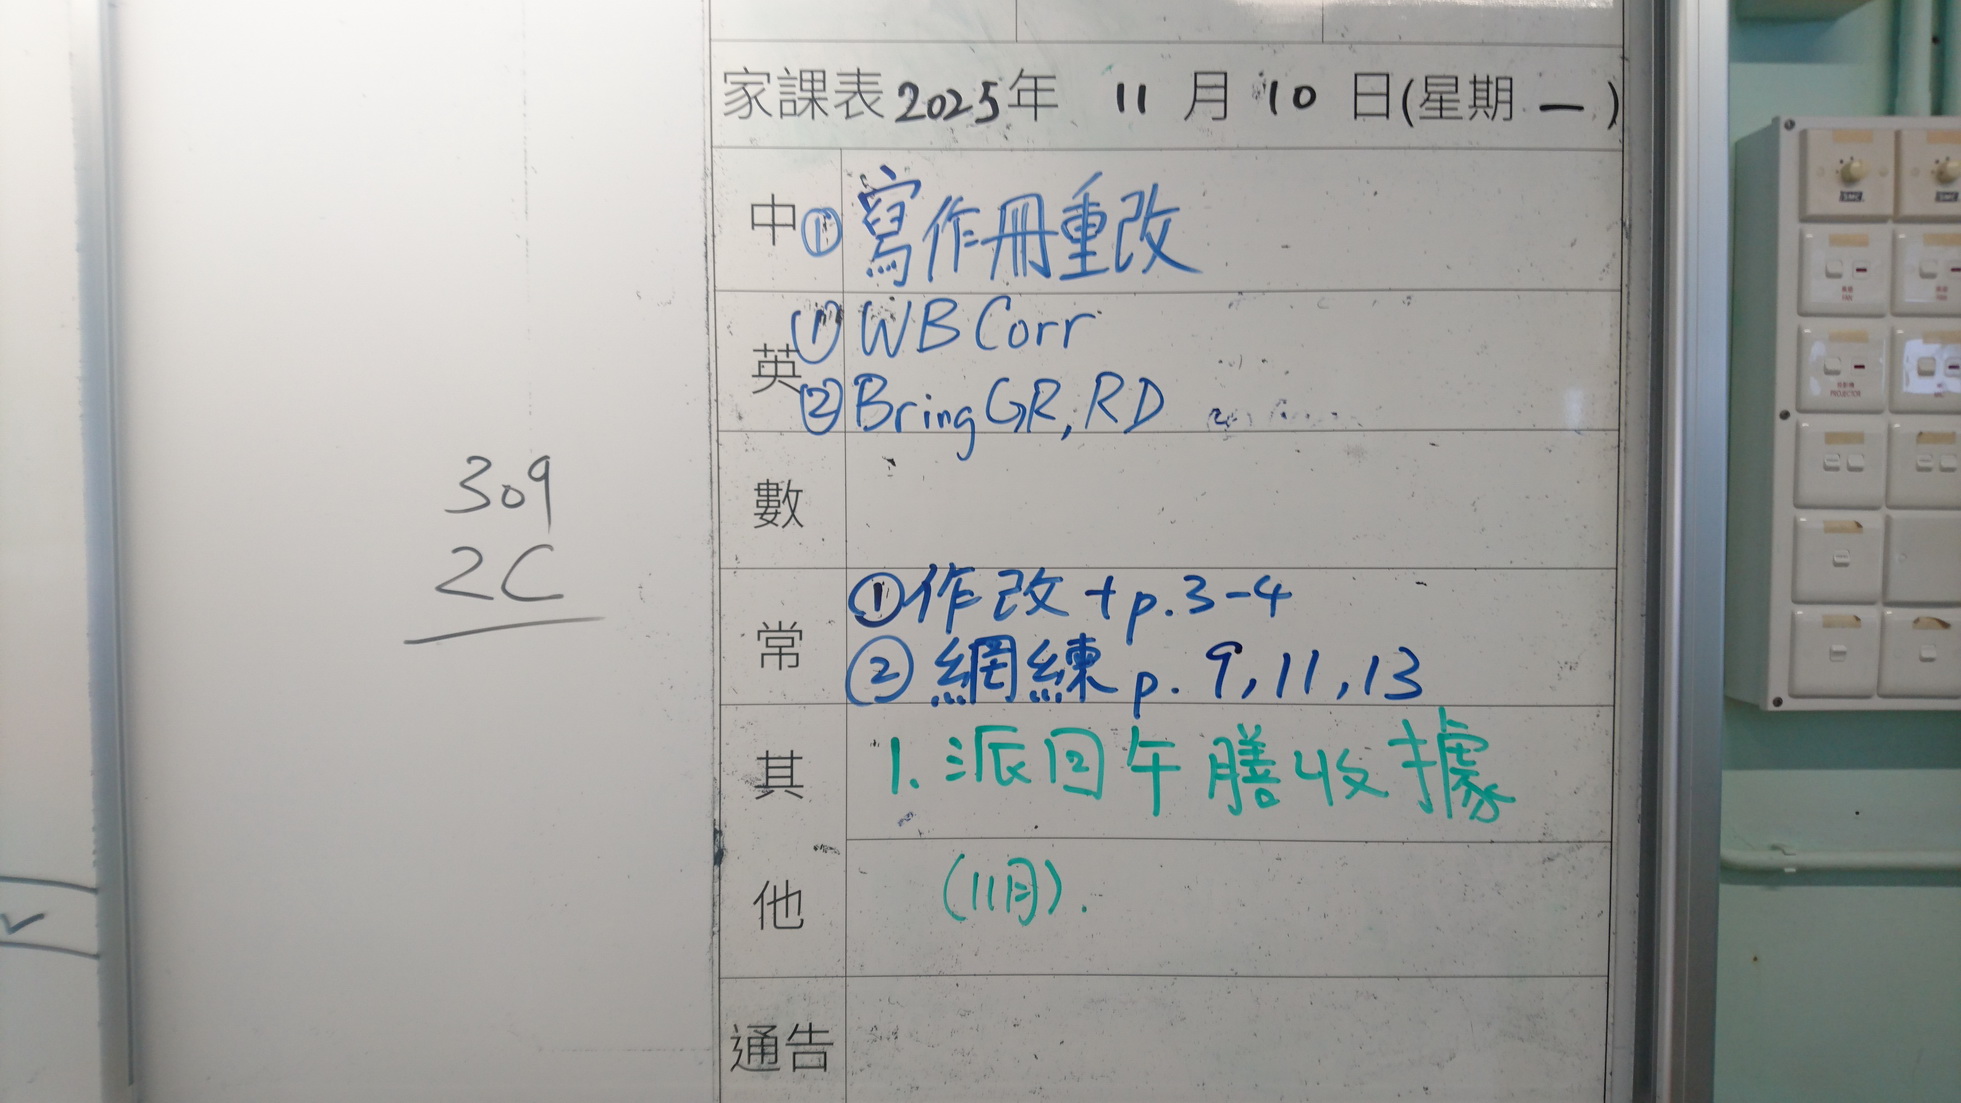 家課表 2025年 11 月 10 日(星期 一 )
中 ① 寫作冊重改
英 ① WB Corr
② Bring GR, RD
數
常 ① 作改 + p.3-4
② 網練 p. 9, 11, 13
其他 1. 派回午膳收據
(11月).
通告
309
2C
PROJECTOR